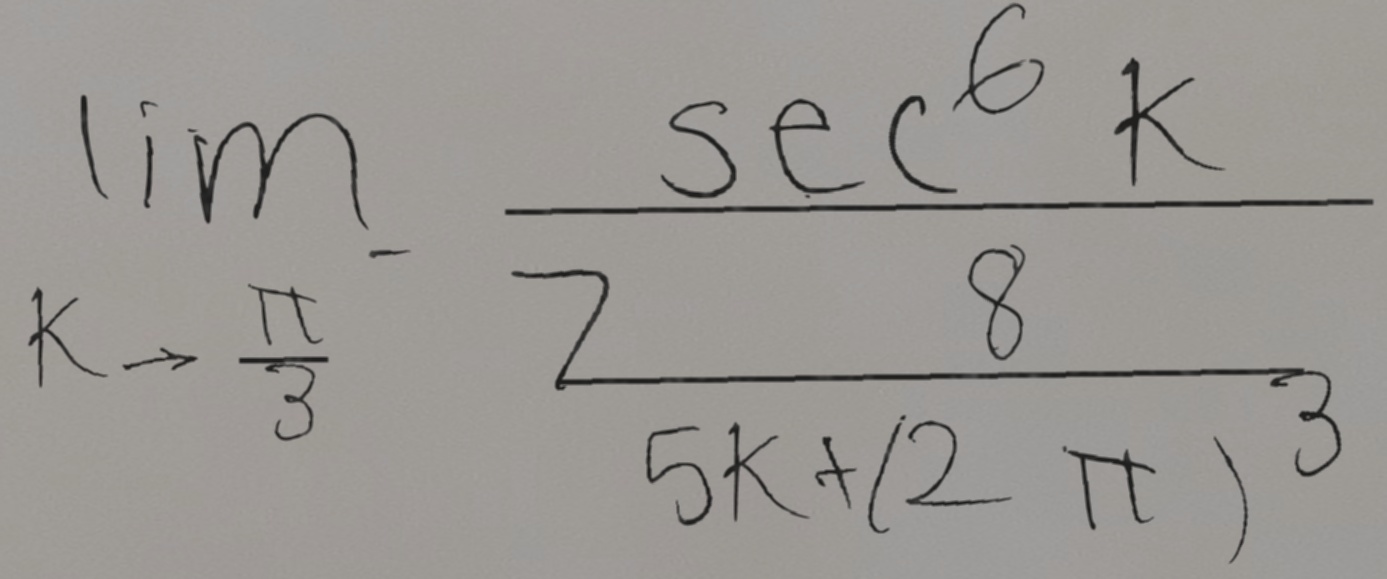 \lim_{K \to \frac{\pi}{3}^-} \frac{\sec^6 K}{7 \frac{8}{5K+(2\pi)^3}}